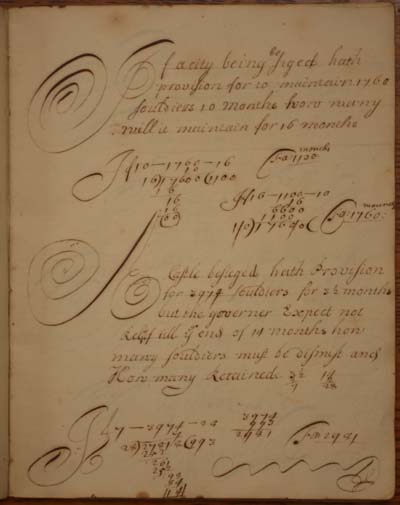 If a city being beſiged hath
provision for to maintain 1760
souldiers 10 months how many
will it maintain for 16 months
If 10 — 1760 — 16
10
16)17600(1100
16
16
16
00
months
1100
If 16 — 1100 — 10
16
6600
1100
1|0)1760|0(
1760
A Castle beſieged hath Provision
for 3974 souldiers for 3½ months
but the governer Expect not
Relief till ye end of 14 months how
many souldiers must be dismist and
How many Retained 3½ 14
7 28
If 7 — 3974 — 28
7
28)27818(993
252
261
252
98
84
14
3974
993
2981
2981